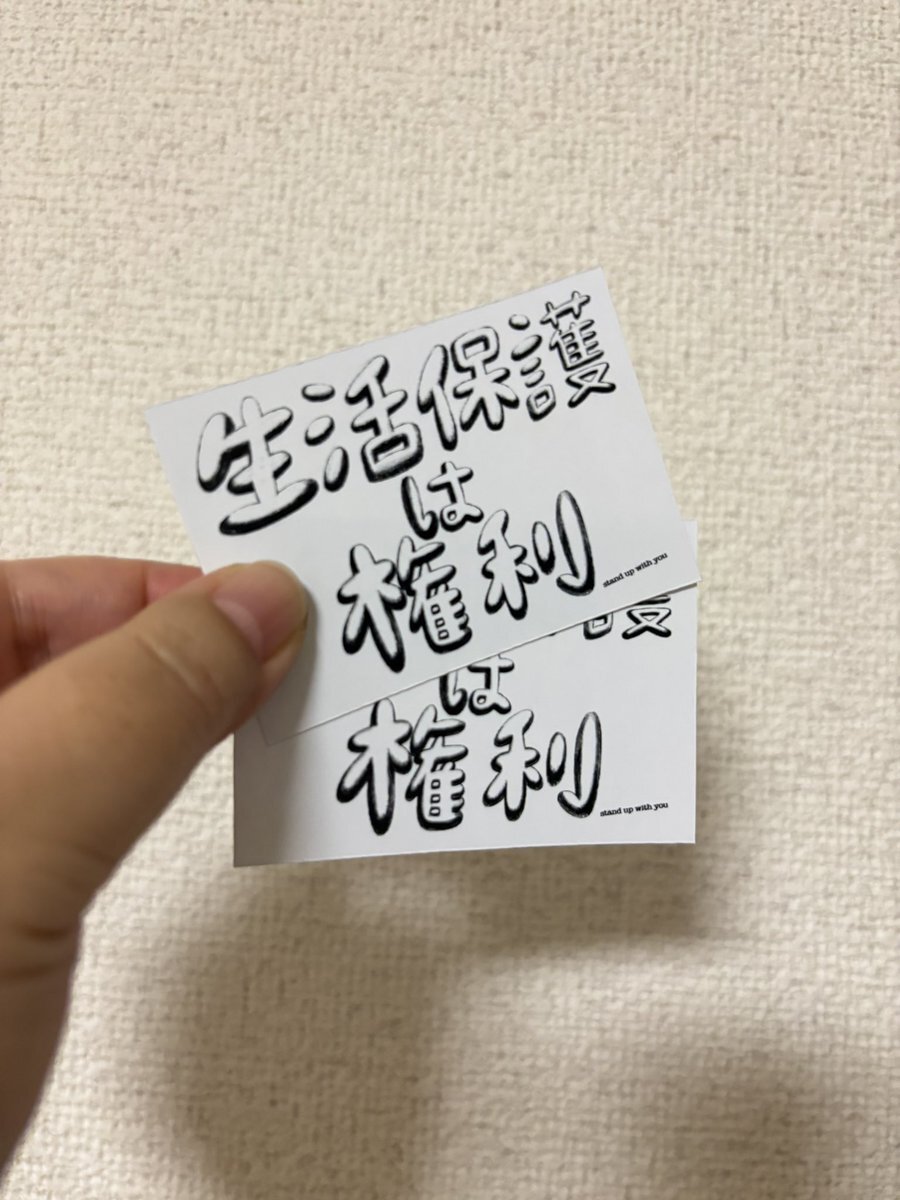 生活保護
は
権利
stand up with you
護
は
権利
stand up with you